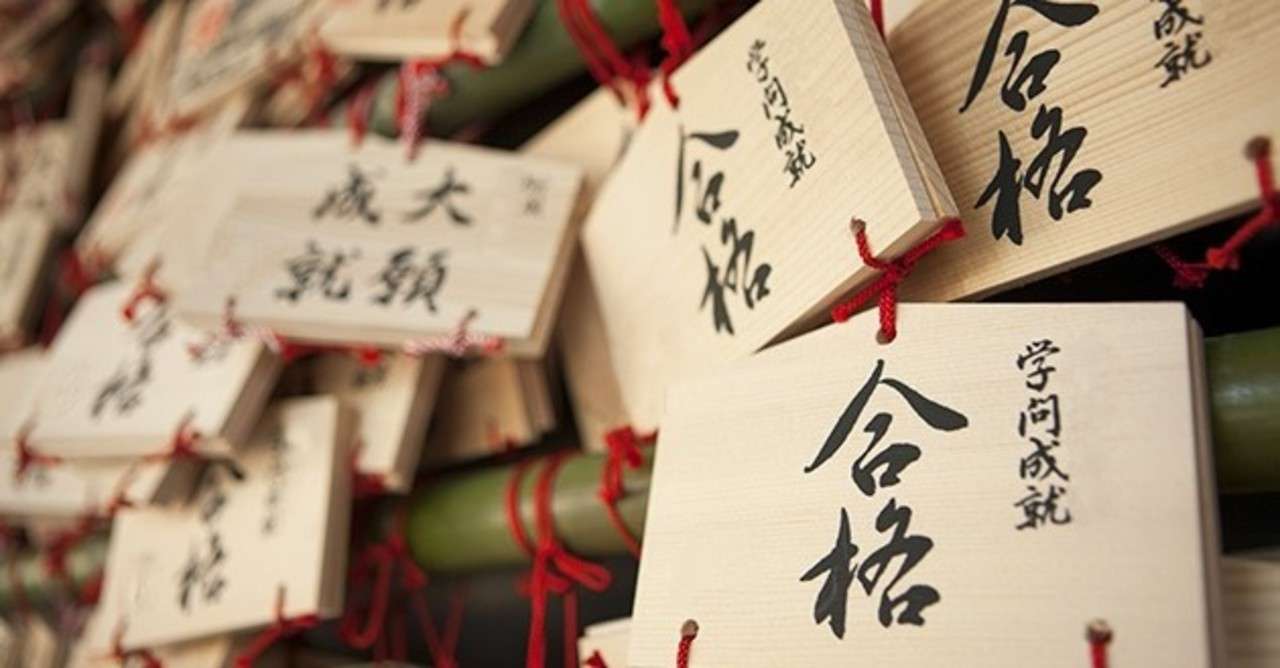 学問成就
合格
成就
合格
大願
成就
学問成就
合格
合格